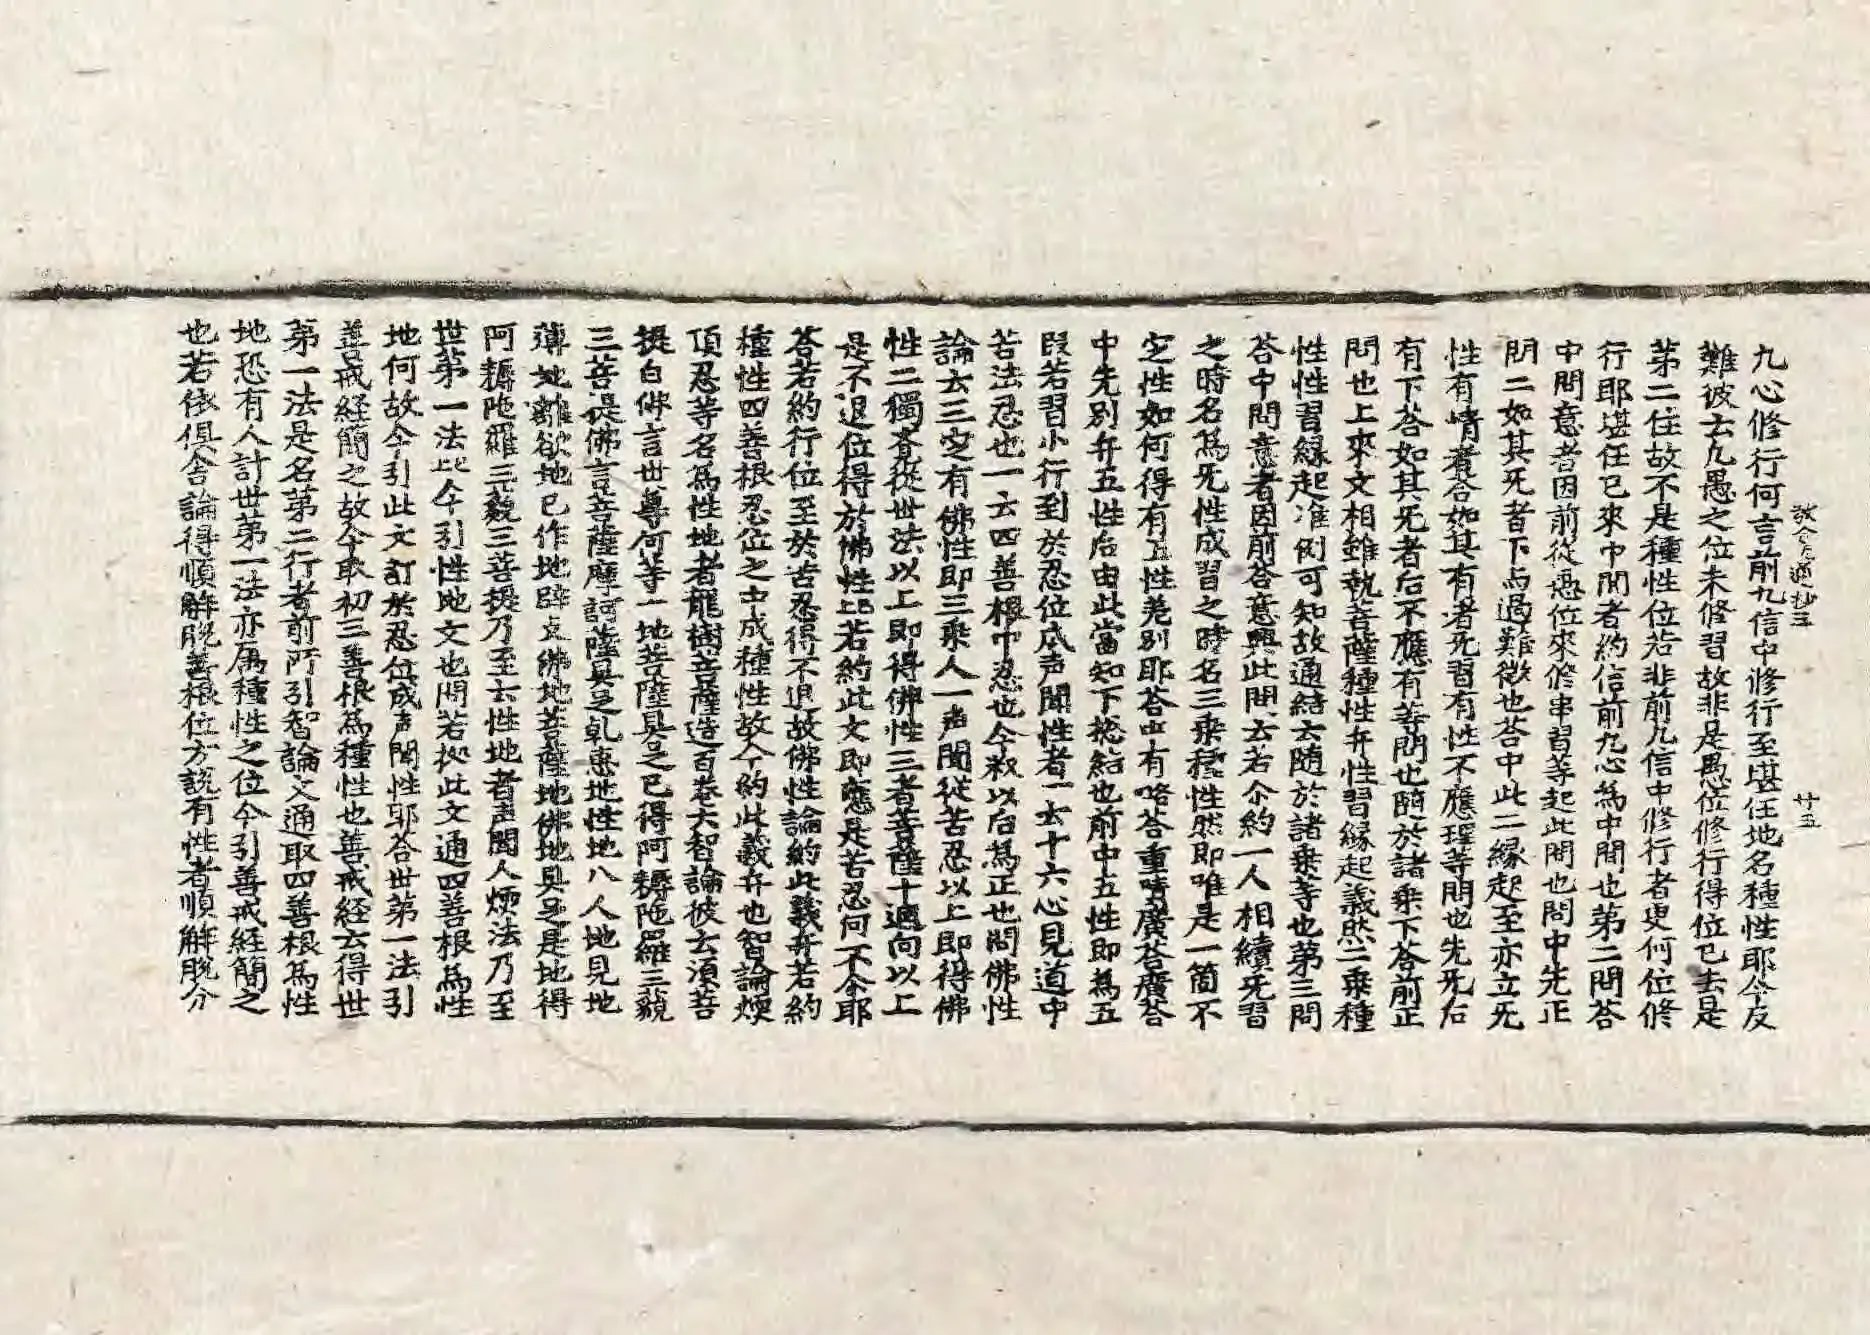 教分遍抄三　廿五
九心修行何言前九信中修行至堪任地名種性耶今反
難彼云九愚之位未修習故非是愚位修行得位已去是
第二住故不是種性位若非前九信中修行者更何位修
行耶堪任已來中間者約信前九心為中間也第二問答
中問意者因前從愚位來修串習等起此問也問中先正
問二如其无者下与過難徴也答中此二縁起至亦立无
性有情者合如其有者无習有性不應理等問也先无后
有下答如其无者后不應有等問也随於諸乗下答前正
問也上來文相雖執菩薩種性并性習縁起義然二乗種
性性習縁起准例可知故通結云随於諸乗等也第三問
答中問意者因前答意興此問云若尒約一人相續无習
之時名為无性成習之時名三乗種性然即唯是一箇不
定性如何得有五性差別耶答中有略答重啨廣答廣答
中先別弁五性后由此當知下惣結也前中五性即為五
段若習小行到於忍位底声聞性者一云十六心見道中
苦法忍也一云四善根中忍也今取以后為正也問佛性
論云三定有佛性即三乗人一声聞従苦忍以上即得佛
性二獨覺從世法以上即得佛性三者菩薩十迴向以上
是不退位得於佛性若約此文即應是苦忍何不今耶
答若約行位至於苦忍得不退故佛性論約此義弁若約
種性四善根忍位之中成種性故今約此義弁也智論煗
頂忍等名為性地者龍樹菩薩造百卷大智論彼云湏菩
提白佛言世尊何等一地菩薩具足已得阿耨陁羅三藐
三菩提佛言菩薩摩訶薩具足乹惠地性地八人地見地
薄地離欲地已作地辟支佛地菩薩地佛地具足是地得
阿耨陁羅三藐三菩提乃至云性地者声聞人煗法乃至
世第一法比今引性地文也問若拠此文通四善根為性
地何故今引此文訂於忍位成声聞性耶答世第一法引
善戒経簡之故今取初三善根為種性也善戒経云得世
第一法是名第二行者前所引智論文通取四善根為性
地恐有人計世第一法亦属種性之位今引善戒経簡之
也若依倶舎論得順解脱善根位方説有性者順解脱分